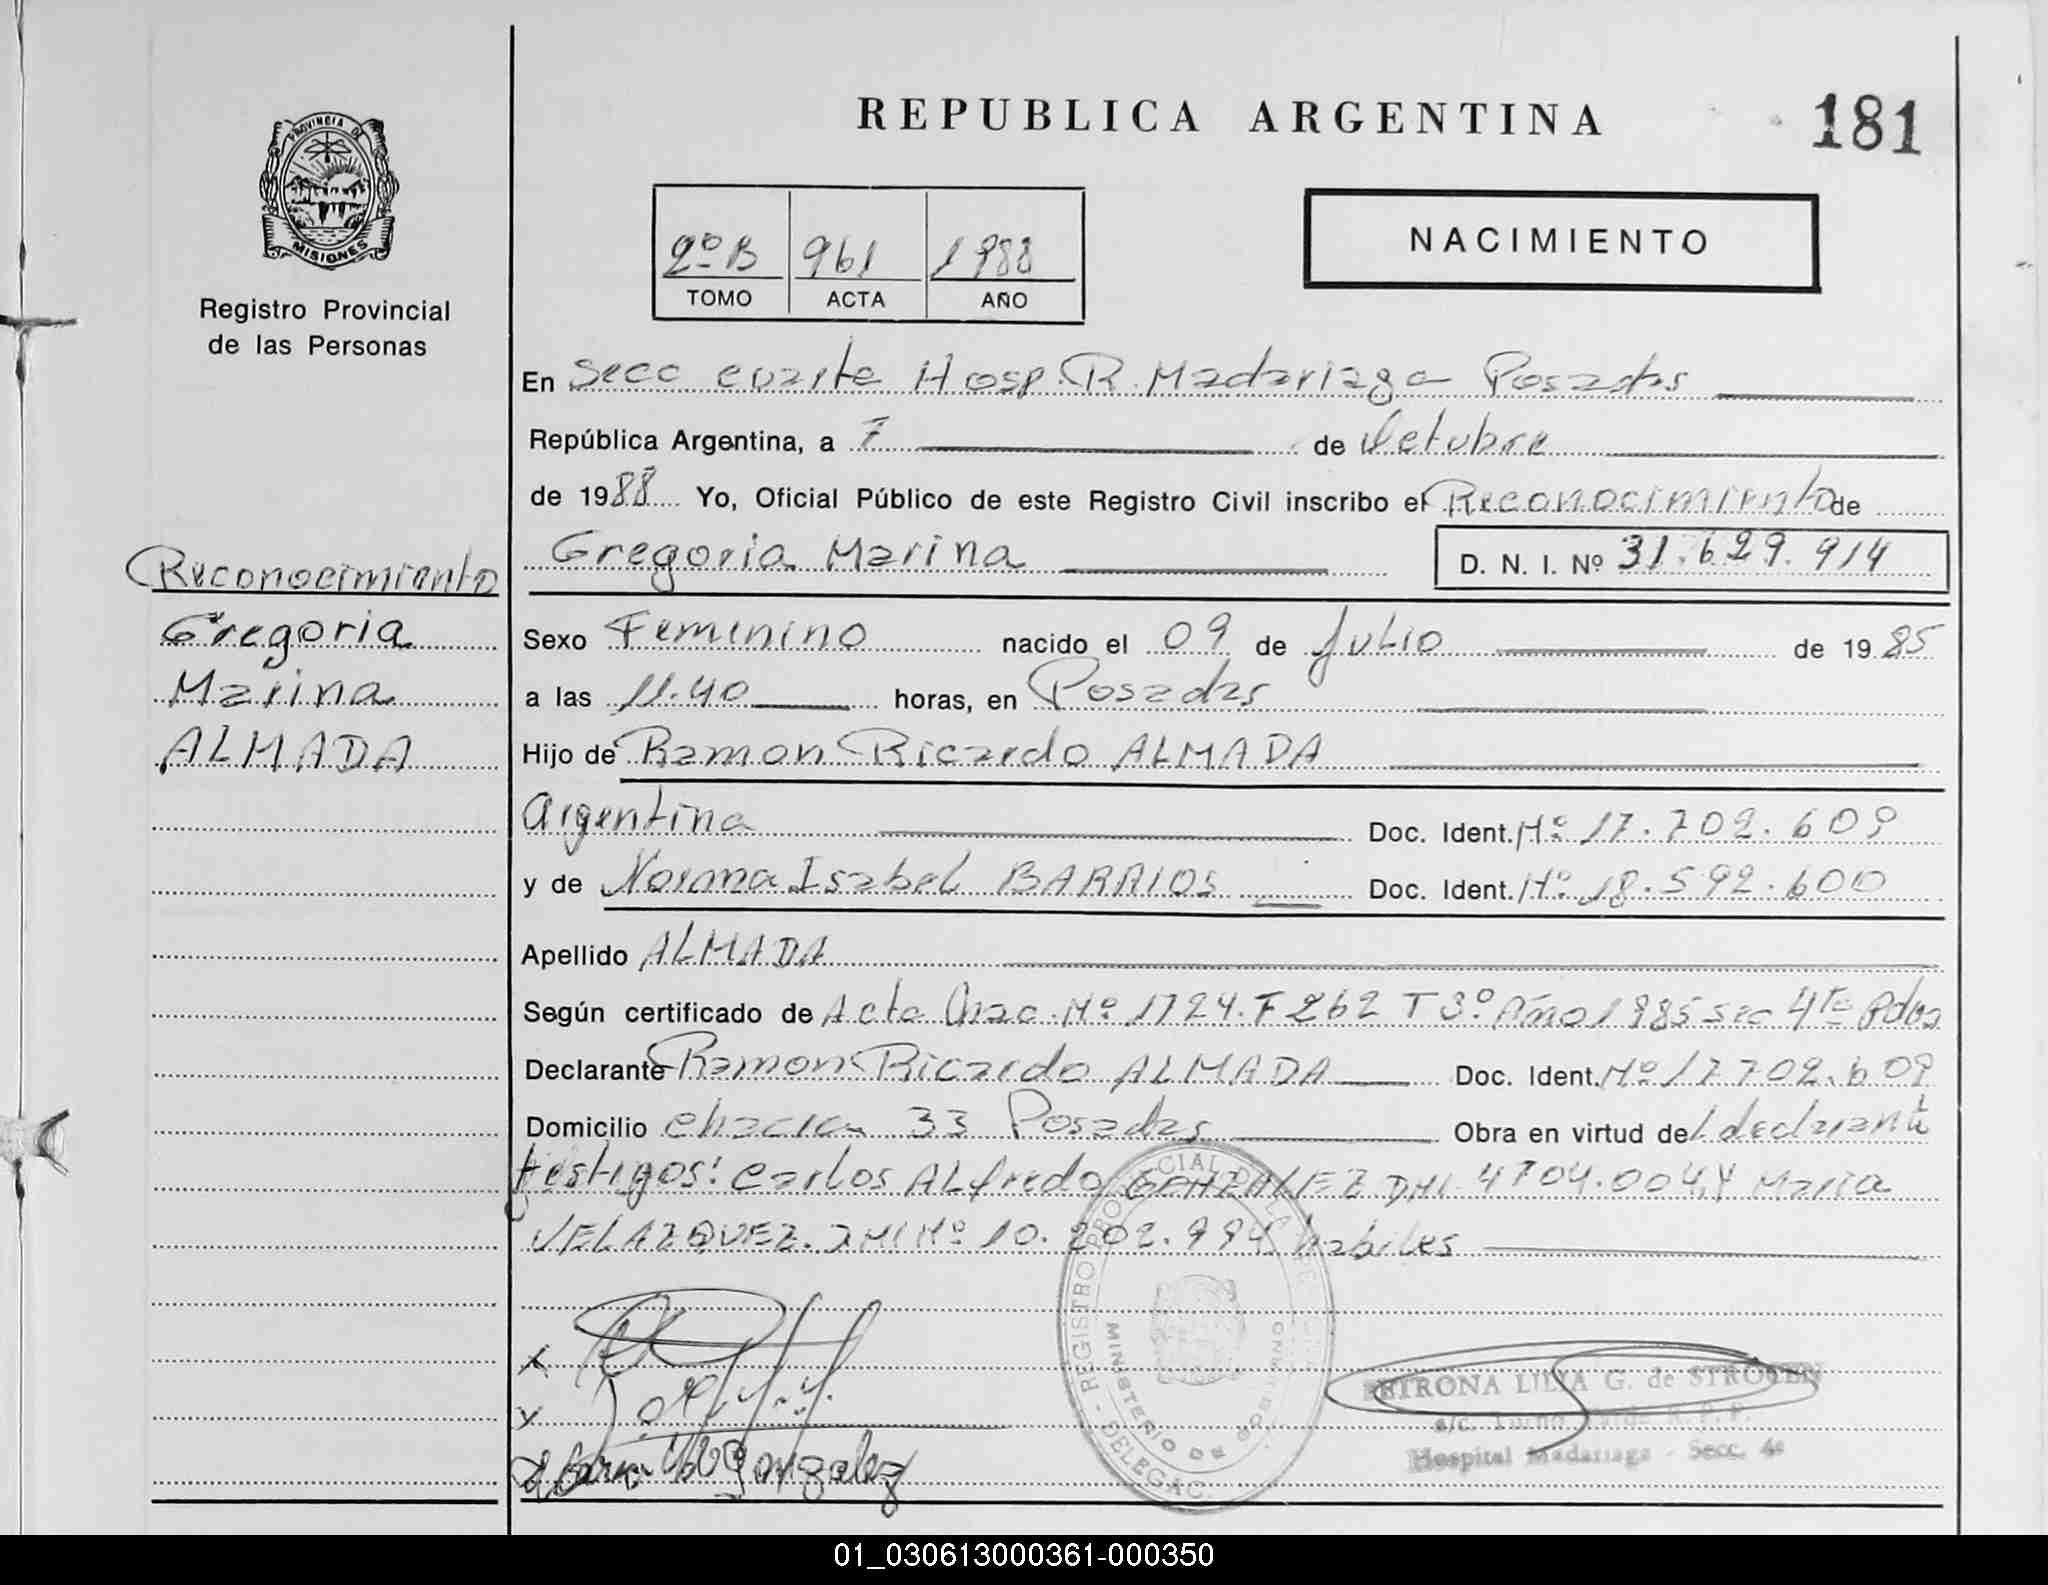 REPUBLICA ARGENTINA
181
PROVINCIA DE
MISIONES
Registro Provincial
de las Personas
2º B 961 1988
TOMO ACTA AÑO
NACIMIENTO
En Secc cuarta Hosp. R. Madariaga Posadas
República Argentina, a 7 de Octubre
de 1988 Yo, Oficial Público de este Registro Civil inscribo el Reconocimiento de
Gregoria Marina D. N. I. Nº 31.629.914
Reconocimiento
Gregoria
Marina
ALMADA
Sexo Femenino nacido el 09 de Julio de 1985
a las 11.40 horas, en Posadas
Hijo de Ramon Ricardo ALMADA
Argentina Doc. Ident. Nº 17.702.609
y de Norma Isabel BARRIOS Doc. Ident. Nº 18.592.600
Apellido ALMADA
Según certificado de Acta Nº 1724. F 262 T 3º Año 1985 sec 4ta Pdas
Declarante Ramon Ricardo ALMADA Doc. Ident. Nº 17.702.609
Domicilio chacra 33 Posadas Obra en virtud del declarante
testigos: Carlos Alfredo GONZALEZ DNI 4704.004 y Maria
VELAZQUEZ. DNI Nº 10.202.994 habiles
REGISTRO PROVINCIAL DE LAS
MINISTERIO DE GOBIERNO
DELEGAC.
Gonzalez
PETRONA LILIA G. de STROCEN
a/c. Turno Tarde R. P. P.
Hospital Madariaga - Secc. 4a
01_030613000361-000350